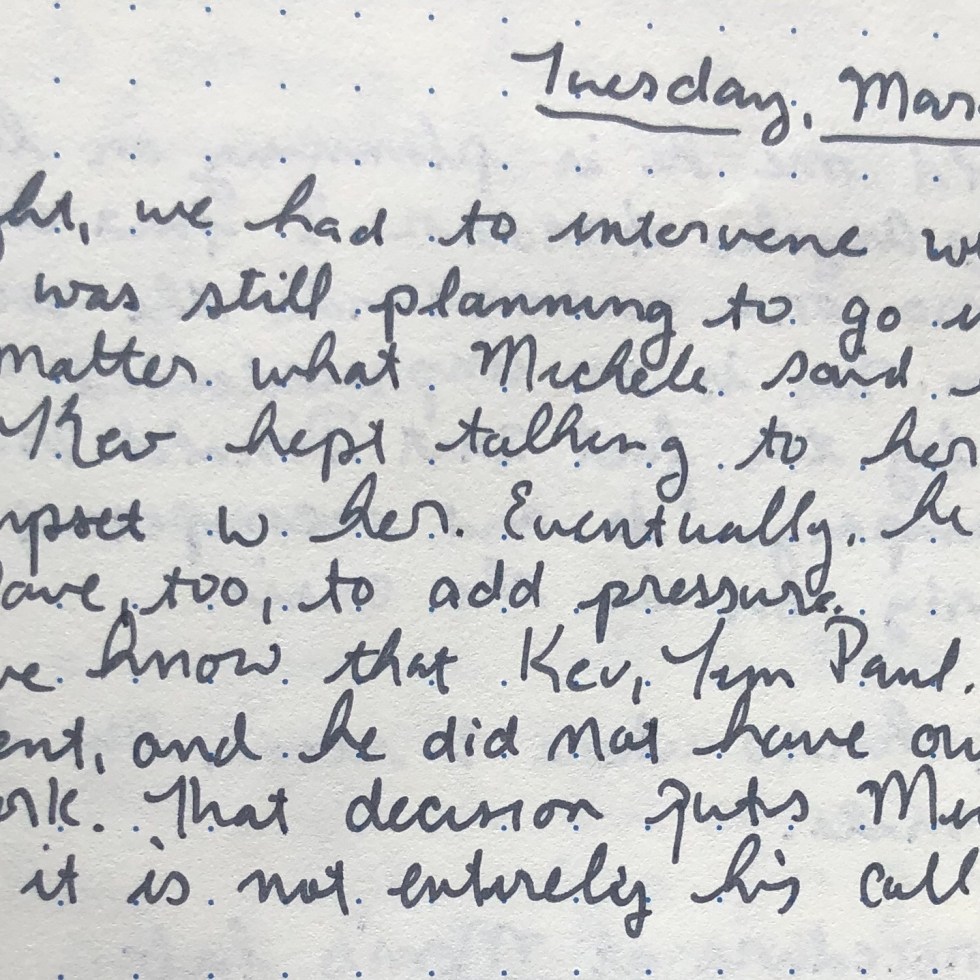 Tuesday, Mar
ght, we had to intervene w
was still planning to go
matter what Michele said
Kev kept talking to her
upset w her. Eventually, he
ave, too, to add pressure.
ve know that Kev, Lyn Paul.
ent, and he did not have ou
ork. That decision puts Mi
it is not entirely his call